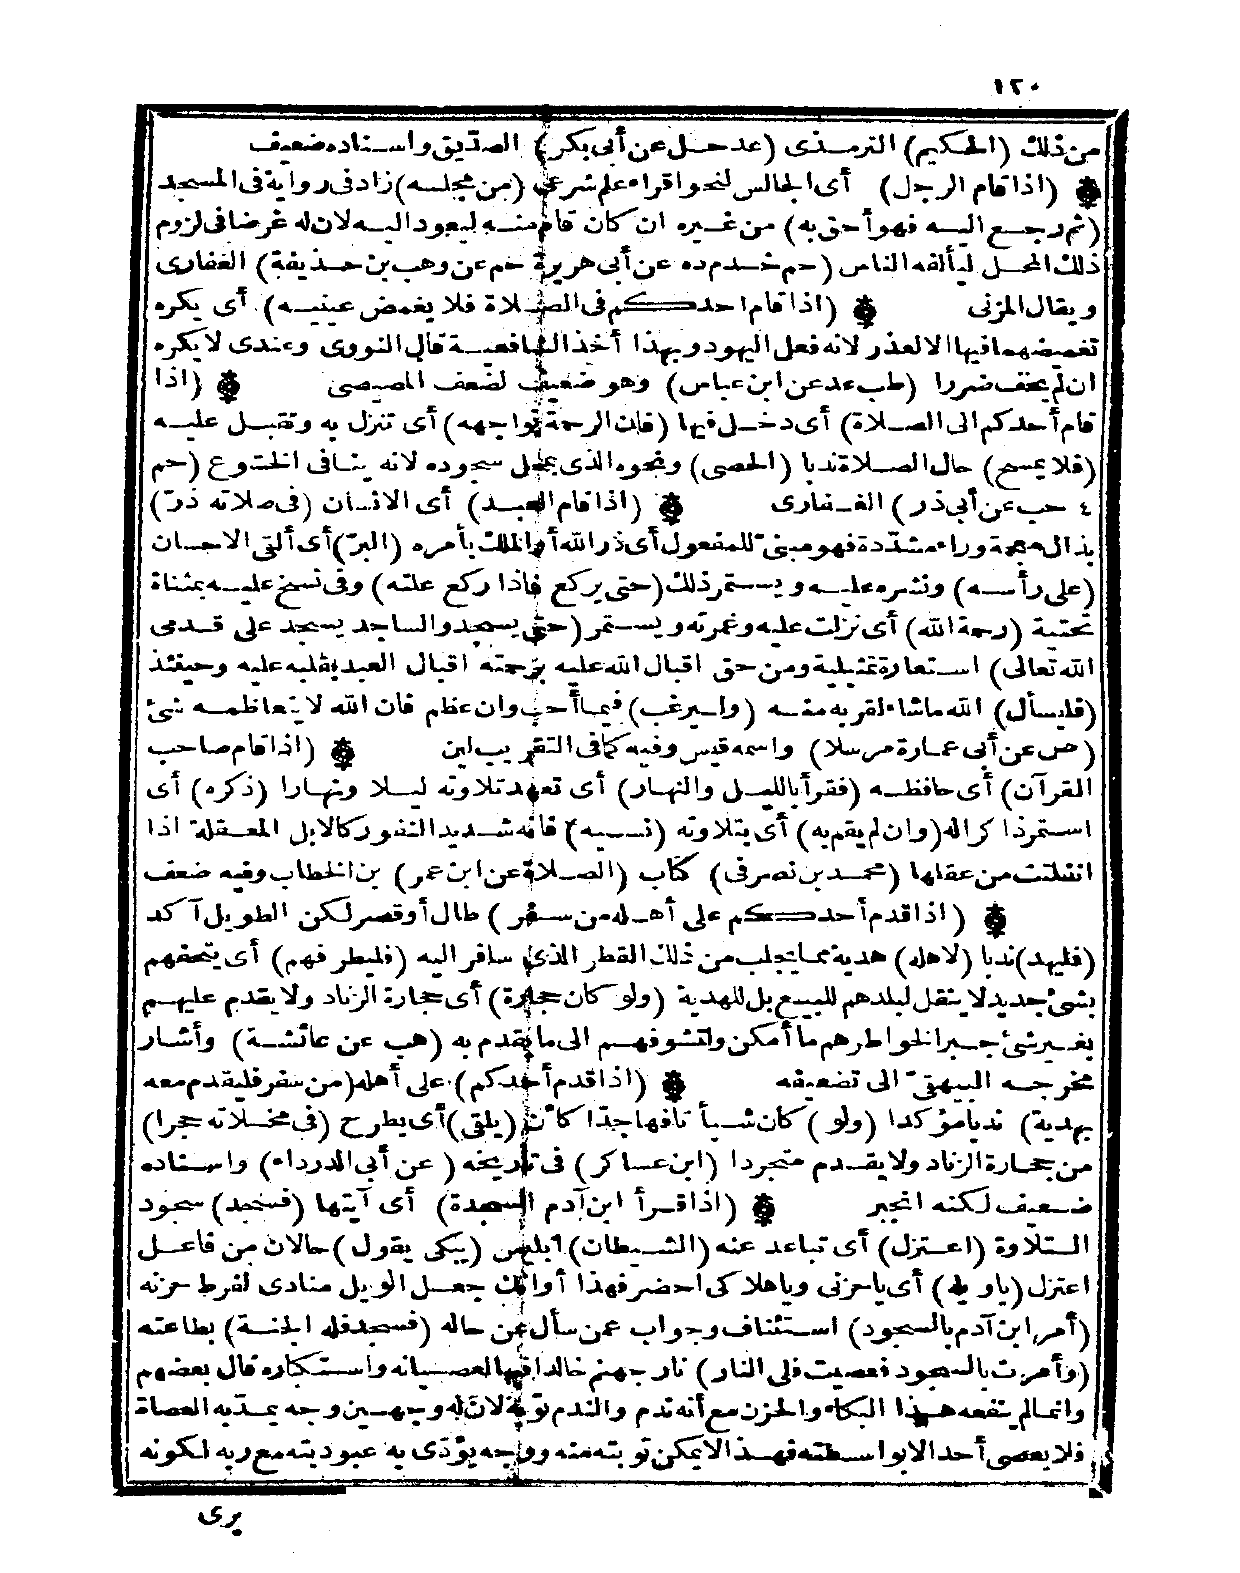 ١٢٠
من ذلك (الحكيم) الترمذى (عد حل عن أبى بكر) الصدّيق واسناده ضعيف
(اذا قام الرجل) أى الجالس لنحو اقراء علم شرعى (من مجلسه) زاد فى رواية فى المسجد
(ثم رجع اليه فهو أحق به) من غيره ان كان قام منه ليعود اليه لان له غرضا فى لزوم
ذلك المحل ليألفه الناس (حم خد م ده عن أبى هريرة حم عن وهب بن حذيفة) الغفارى
ويقال المزنى (اذا قام احدكم فى الصلاة فلا يغمض عينيه) أى يكره
تغميضهما فيها الا لعذر لانه فعل اليهود وبهذا أخذ الشافعية قال النووى وعندى لا يكره
ان لم يخف ضررا (طب عد عن ابن عباس) وهو ضعيف لضعف المصيصى (اذا
قام أحدكم الى الصلاة) أى دخل فيها (فان الرحمة تواجهه) أى تنزل به وتقبل عليه
(فلا يمسح) حال الصلاة ندبا (الحصى) ونحوه الذى بمحل سجوده لانه ينافى الخشوع (حم
٤ حب عن أبى ذر) الغفارى (اذا قام العبد) أى الانسان (فى صلاته ذرّ)
بذال معجمة وراء مشدّدة فهو مبنىّ للمفعول أى ذر الله أو الملك بأمره (البرّ) أى ألقى الاحسان
(على رأسه) ونشره عليه ويستمر ذلك (حتى يركع فاذا ركع علته) وفى نسخ عليه بمثناة
تحتية (رحمة الله) أى نزلت عليه وغمرته ويستمر (حتى يسجد والساجد يسجد على قدمى
الله تعالى) استعارة تمثيلية ومن حق اقبال الله عليه برحمته اقبال العبد بقلبه عليه وحينئذ
(فليسأل) الله ما شاء لقربه منه (وليرغب) فيما أحب وان عظم فان الله لا يتعاظمه شئ
(ص عن أبى عمارة مرسلا) واسمه قيس وفيه كما فى التقريب لين (اذا قام صاحب
القرآن) أى حافظه (فقرأ بالليل والنهار) أى تعهد تلاوته ليلا ونهارا (ذكره) أى
استمر ذا كراله (وان لم يقم به) أى بتلاوته (نسيه) فانه شديد النفور كالابل المعقلة اذا
انفلتت من عقلها (محمد بن نصر فى) كتاب (الصلاة عن ابن عمر) بن الخطاب وفيه ضعف
(اذا قدم أحدكم على أهله من سفر) طال أو قصر لكن الطويل آكد
(فليهد) ندبا (لاهله) هدية مما يجلب من ذلك القطر الذى سافر اليه (فليطرفهم) أى يتحفهم
بشئ جديد لا ينقل لبلدهم للبيع بل للهدية (ولو كان حجارة) أى حجارة الزناد ولا يقدم عليهم
بغير شئ جبرا لخواطرهم ما أمكن ولتشوفهم الى ما يقدم به (هب عن عائشة) وأشار
مخرجه البيهقىّ الى تضعيفه (اذا قدم أحدكم) على أهله (من سفر فليقدم معه
بهدية) ندبا مؤكدا (ولو) كان شيأ تافها جدّا كان (يلقى) أى يطرح (فى مخلاته حجرا)
من حجارة الزناد ولا يقدم متجردا (ابن عساكر) فى تاريخه (عن أبى الدرداء) واسناده
ضعيف لكنه انجبر (اذا قرأ ابن آدم السجدة) أى آيتها (فسجد) سجود
التلاوة (اعتزل) أى تباعد عنه (الشيطان) ابليس (يبكى يقول) حالان من فاعل
اعتزل (ياويله) أى ياحزنى وياهلاكى احضر فهذا أوانك جعل الويل منادى لفرط حزنه
(أمر ابن آدم بالسجود) استئناف وجواب عمن سأل عن حاله (فسجد فله الجنة) بطاعته
(وأمرت بالسجود فعصيت فلى النار) نار جهنم خالدا فيها لعصيانه واستكباره قال بعضهم
وانما لم ينفعه هذا البكاء والحزن مع أنه ندم والندم توبة لان له وجهين وجه يمد به العصاة
فلا يعصى أحد الا بواسطته فهذا لا يمكن توبته منه ووجه يؤدّى به عبوديته مع ربه لكونه
يرى